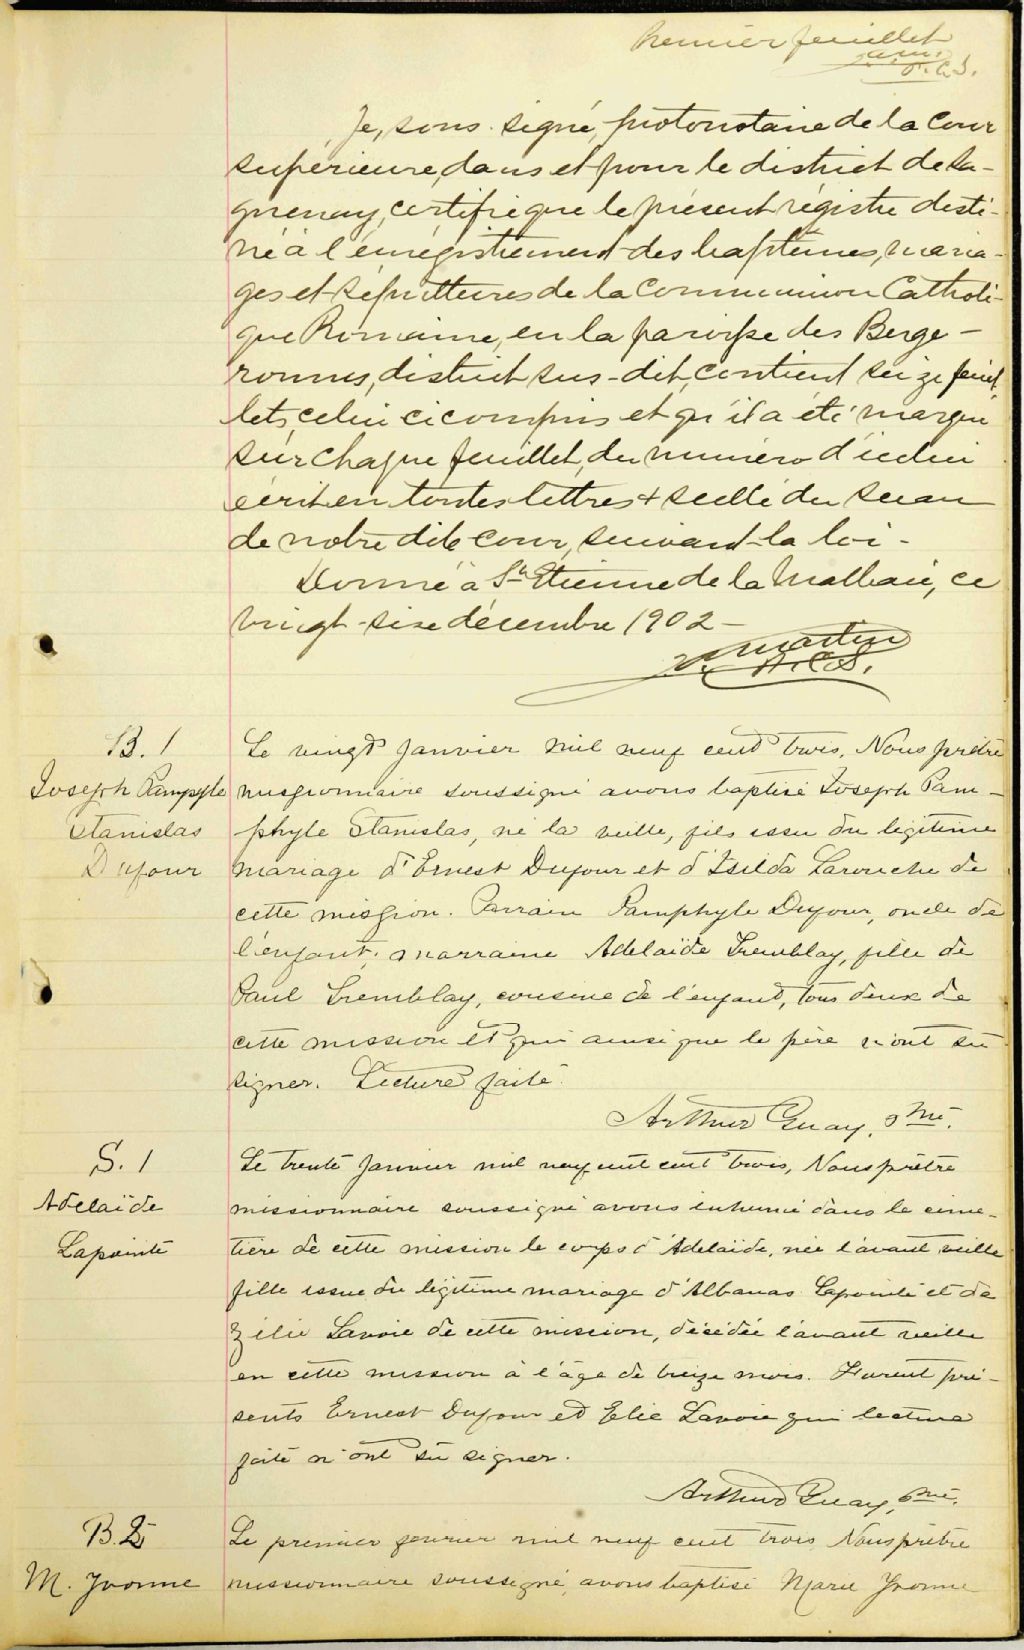 Premier feuillet
P.C.S.
Je, sous-signé, protonotaire de la Cour
supérieure, dans et pour le district de Sa-
guenay, certifie que le présent régistre desti-
né à l'enrégistrement des baptêmes, maria-
ges et sépultures de la Communion Catholi-
que Romaine, en la paroisse des Berge-
ronnes, district sus-dit, contient seize feuil-
lets, celui ci compris et qu'il a été marqué
sur chaque feuillet, du numéro d'icelui
écrit en toutes lettres & scellé du sceau
de notre dite cour, suivant la loi -
Donné à St Etienne de la Malbaie, ce
vingt-six décembre 1902 -
Martin
P.C.S.
B. 1
Joseph Pamphyle
Stanislas
Dufour
Le vingt Janvier mil neuf cent trois, Nous prêtre
missionnaire soussigné avons baptisé Joseph Pam-
phyle Stanislas, né la veille, fils issu du légitime
mariage d'Ernest Dufour et d'Exilda Larouche de
cette mission. Parrain Pamphyle Dufour, oncle de
l'enfant; marraine Adelaïde Tremblay, fille de
Paul Tremblay, cousine de l'enfant, tous deux de
cette mission et qui ainsi que le père n'ont su
signer. Lecture faite.
Arthur Guay, ptre.
S. 1
Adelaïde
Lapointe
Le trente Janvier mil neuf cent cent trois, Nous prêtre
missionnaire soussigné avons inhumé dans le cime-
tière de cette mission le corps d'Adelaïde, née l'avant veille
fille issue du légitime mariage d'Albanas Lapointe et de
Zélie Savoie de cette mission, décédée l'avant veille
en cette mission à l'âge de treize mois. Furent pré-
sents Ernest Dufour et Elie Savoie qui lecture
faite n'ont su signer.
Arthur Guay, ptre.
B. 2
M. Yvonne
Le premier fevrier mil neuf cent trois Nous prêtre
missionnaire soussigné, avons baptisé Marie Yvonne